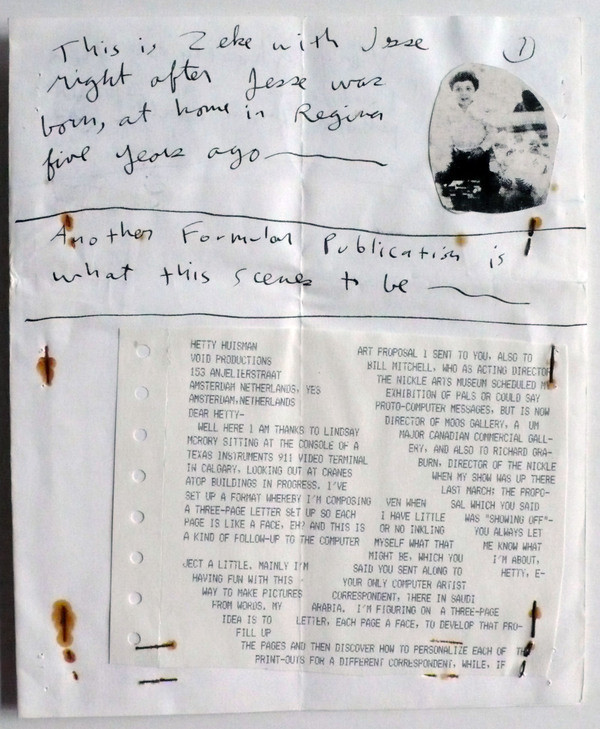 This is Zeke with Jesse
right after Jesse was
born, at home in Regina
five years ago
1
Another Formular Publication is
what this scenes to be
HETTY HUISMAN
VOID PRODUCTIONS
153 ANJELIERSTRAAT
AMSTERDAM NETHERLANDS, YES
AMSTERDAM, NETHERLANDS
DEAR HETTY-
WELL HERE I AM THANKS TO LINDSAY
MCRORY SITTING AT THE CONSOLE OF A
TEXAS INSTRUMENTS 911 VIDEO TERMINAL
IN CALGARY, LOOKING OUT AT CRANES
ATOP BUILDINGS IN PROGRESS. I'VE
SET UP A FORMAT WHEREBY I'M COMPOSING
A THREE-PAGE LETTER SET UP SO EACH
PAGE IS LIKE A FACE, EH? AND THIS IS
A KIND OF FOLLOW-UP TO THE COMPUTER
ART PROPOSAL I SENT TO YOU, ALSO TO
BILL MITCHELL, WHO AS ACTING DIRECTOR
THE NICKLE ARTS MUSEUM SCHEDULED
EXHIBITION OF PALS OR COULD SAY
PROTO-COMPUTER MESSAGES, BUT IS NOW
DIRECTOR OF MOOS GALLERY, A UM
MAJOR CANADIAN COMMERCIAL GALL-
ERY, AND ALSO TO RICHARD GRA-
BURN, DIRECTOR OF THE NICKLE
WHEN MY SHOW WAS UP THERE
LAST MARCH; THE PROPO-
SAL WHICH YOU SAID
WAS "SHOWING OFF"-
YOU ALWAYS LET
ME KNOW WHAT
I'M ABOUT,
HETTY, E-
VEN WHEN
I HAVE LITTLE
OR NO INKLING
MYSELF WHAT THAT
MIGHT BE, WHICH YOU
SAID YOU SENT ALONG TO
YOUR ONLY COMPUTER ARTIST
CORRESPONDENT, THERE IN SAUDI
ARABIA. I'M FIGURING ON A THREE-PAGE
LETTER, EACH PAGE A FACE, TO DEVELOP THAT PRO-
JECT A LITTLE. MAINLY I'M
HAVING FUN WITH THIS
WAY TO MAKE PICTURES
FROM WORDS. MY
IDEA IS TO
FILL UP
THE PAGES AND THEN DISCOVER HOW TO PERSONALIZE EACH OF
PRINT-OUTS FOR A DIFFERENT CORRESPONDENT, WHILE, IF